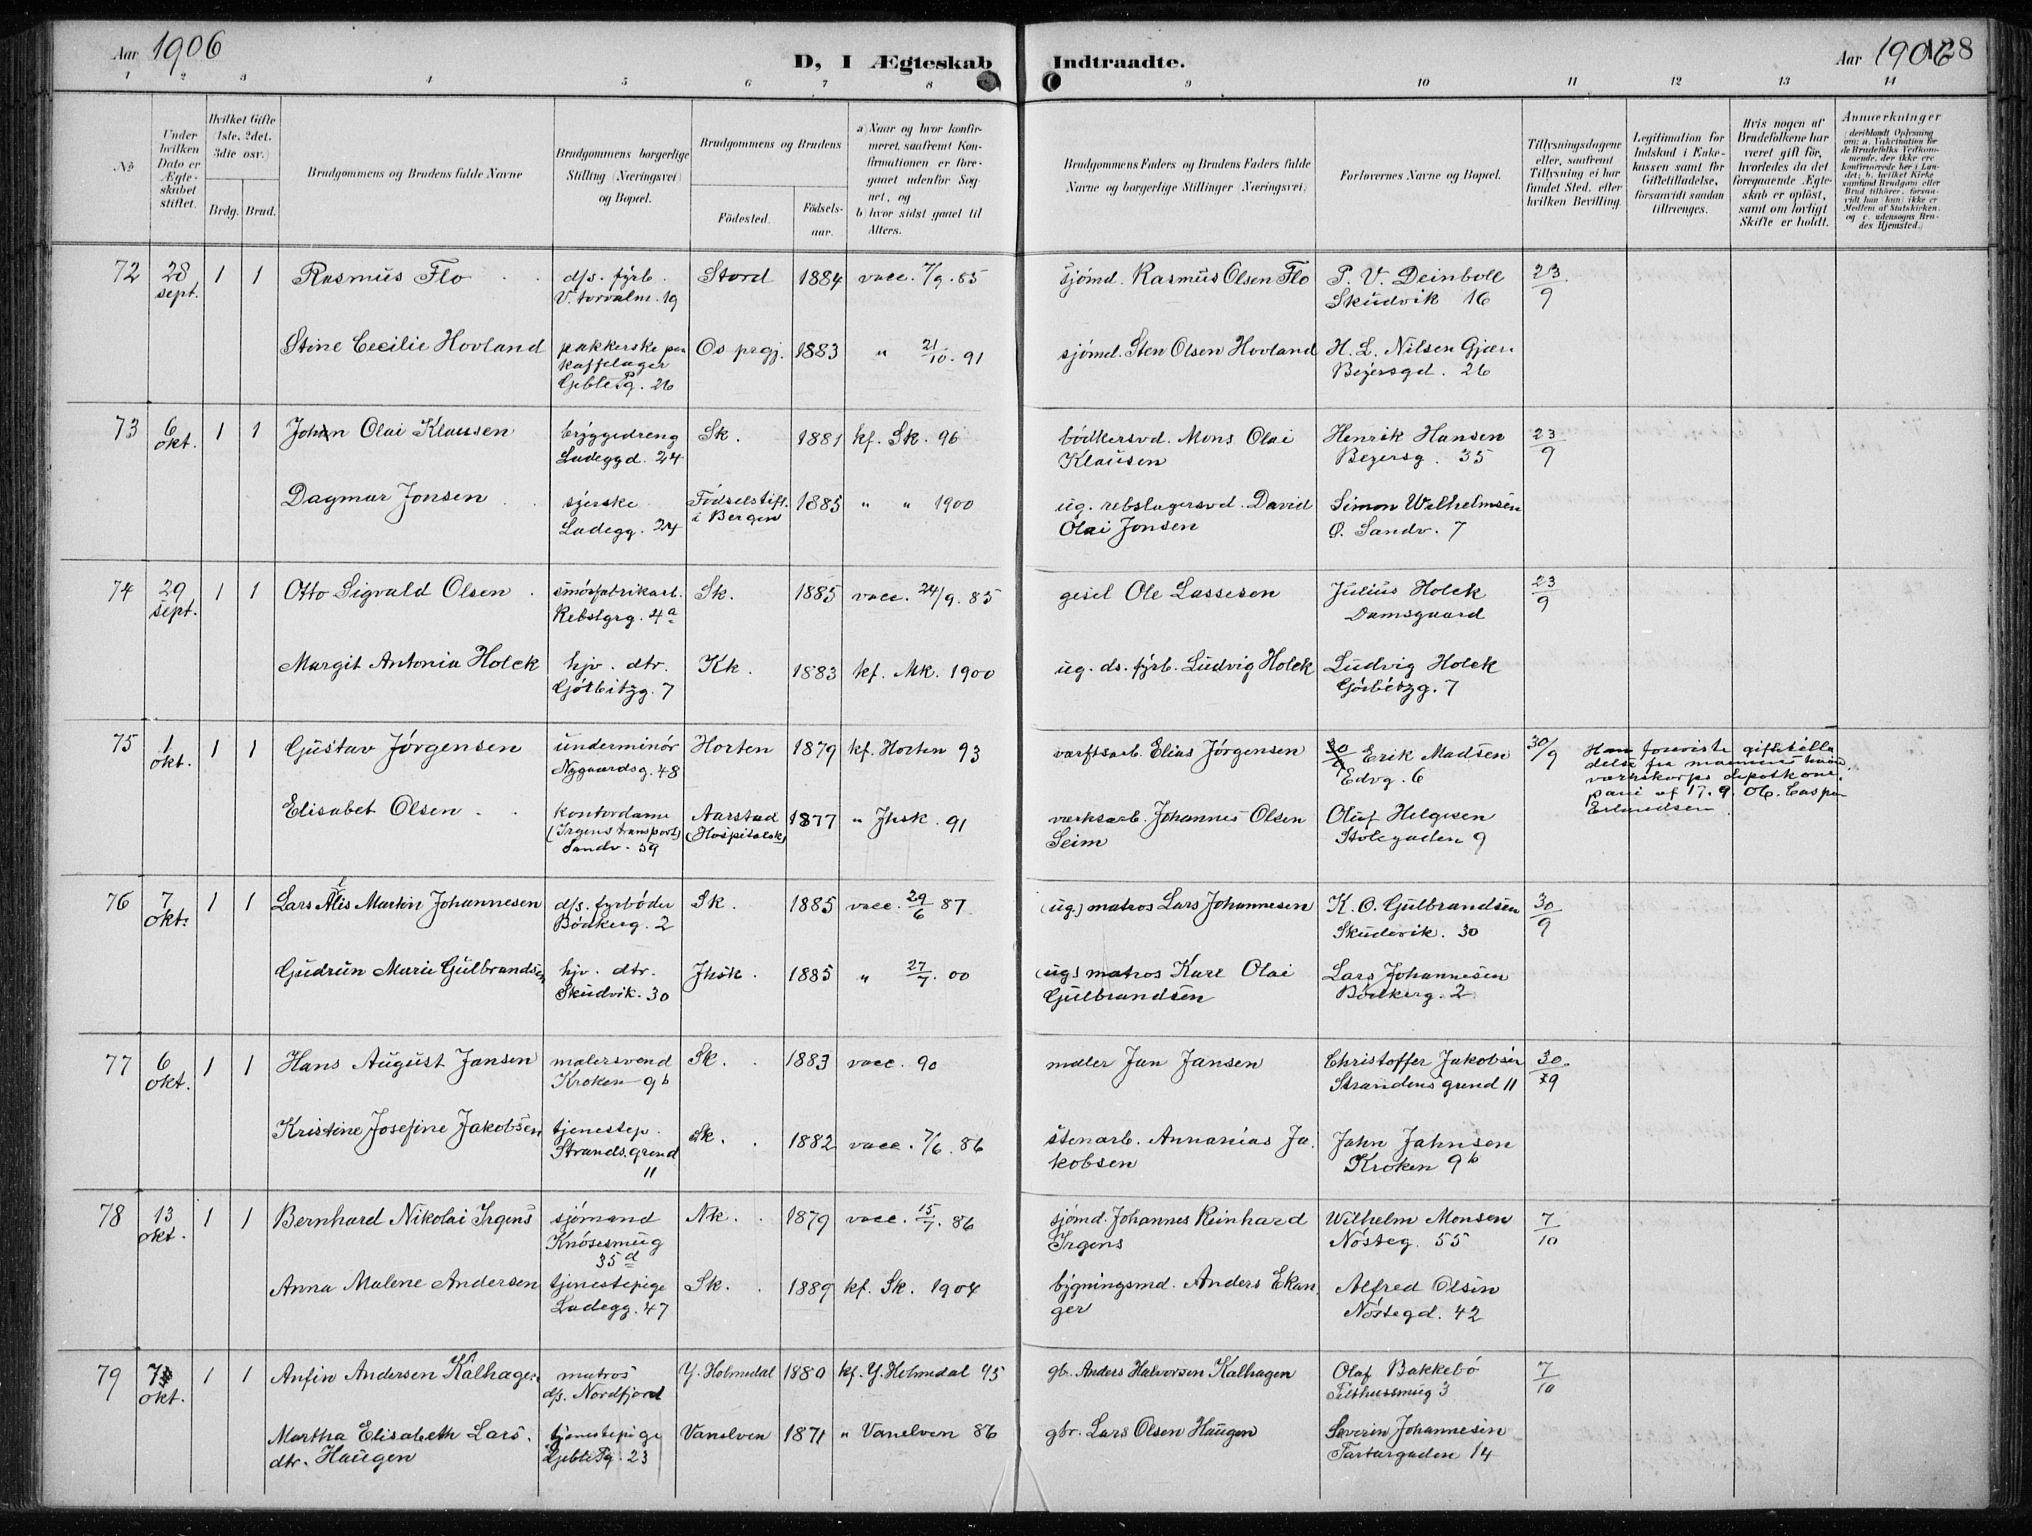 Aar 1906
D, I Ægteskab Indtraadte.
Aar 1906
128
1 2 3 4 5 6 7 8 9 10 11 12 13 14
No.
Under hvilken Dato er Ægteskabet stiftet.
Hvilket Gifte (1ste, 2det, 3die osv.)
Brdg. Brud.
Brudgommens og Brudens fulde Navne
Brudgommens borgerlige Stilling (Næringsvei) og Bopæl.
Brudgommens og Brudens
Fødested.
Fødselsaar.
a) Naar og hvor konfirmeret, saafremt Konfirmationen er foregaaet udenfor Sognet, og
b) hvor sidst gaaet til Alters.
Brudgommens Faders og Brudens Faders fulde Navne og borgerlige Stillinger (Næringsvei)
Forlovernes Navne og Bopæl.
Tillysningsdagene eller, saafremt Tillysning ei har fundet Sted, efter hvilken Bevilling.
Legitimation for Indskud i Enkekassen samt for Giftetilladelse, forsaavidt saadan tiltrænges.
Hvis nogen af Brudefolkene har været gift før, hvorledes da det foregaaende Ægteskab er opløst, samt om lovligt Skifte er holdt.
Anmærkninger
72 28 sept. 1 1 Rasmus Flo
d/s. fyrb. V. torvalm. 19
Stord 1884 vacc. 7/9. 85
sjømd. Rasmus Olsen Flo
P. V. Deinboll
Skudvik 16
23/9
Stine Cecilie Hovland
pakkerske paa kaffelager
Geble Pg. 26
Os prgj. 1883 " 21/10. 91
sjømd. Sten Olsen Hovland
H. L. Nilsen Gjær
Beyersgd. 26
73 6 okt. 1 1 Johan Olai Klausen
bryggedreng
Ladeggd. 24
Sk. 1881 kf. Sk. 96
bødkersvd. Mons Olai
Klausen
Henrik Hansen
Beyersg. 35
23/9
Dagmar Jonsen
syerske
Ladegg. 24
Fødselstift. i Bergen
1885 " " 1900
ug. rebslagersvd. David
Olai Jonsen
Simon Wilhelmsen
Ø. Sandv. 7
74 29 sept. 1 1 Otto Sigvald Olsen
smørfabrikarb.
Rebslgrg. 4a
Sk. 1885 vacc. 24/9. 85
gesel Ole Lassesen
Julius Holck
Damsgaard
23/9
Margit Antonia Holck
hjv. dtr.
Gørbitzg. 7
Kk. 1883 kf. Mk. 1900
ug. ds. fyrb. Ludvig Holck
Ludvig Holck
Gørbitzg. 7
75 1 okt. 1 1 Gustav Jørgensen
underminør
Nygaardsg. 48
Horten 1879 kf. Horten 93
varftsarb. Elias Jørgensen
Erik Madsen
Edvg. 6
30/9
Han foreviste giftetilladelse fra
af 17. 9. 06. Casper
Erlandsen
Elisabet Olsen
kontordame
(Irgens transport)
Sandv. 59
Aarstad
(Hospitalsk)
1877 " Jhsk. 91
værksarb. Johannes Olsen
Seim
Oluf Helgesen
Stølegaden 9
76 7 okt. 1 1 Lars Alis Martin Johannesen
d/s. fyrbøder
Bødkerg. 2
Sk. 1885 vacc. 29/6 87
(ug.) matros Lars Johannesen
K. O. Gulbrandsen
Skudevik. 30
30/9
Gudrun Marie Gulbrandsen
hjv. dtr.
Skudvik. 30
Jhsk. 1885 " 27/7. 00
(ug) matros Karl Olai
Gulbrandsen
Lars Johannesen
Bødkerg. 2
77 6 okt. 1 1 Hans August Jansen
malersvend
Kroken 9b
Sk. 1883 vacc. 90
maler Jan Jansen
Christoffer Jakobsen
Strandens grend 11
30/9
Kristine Josefine Jakobsen
tjenestep.
Strands. grend
11
Sk. 1882 vacc. 7/6. 86
stenarb. Annanias Ja.
kobsen
Jahn Jahnsen
Kroken 9b
78 13 okt. 1 1 Bernhard Nikolai Irgens
sjømand
Knøsesmug
35d
Nk. 1879 vacc. 15/7. 86
sjømd. Johannes Reinhard
Irgens
Wilhelm Monsen
Nøsteg. 55
7/10
Anna Malene Andersen
tjenestepige
Ladegg. 47
Sk. 1889 kf. Sk. 1904
bygningsmd. Anders Ekan,
ger
Alfred Olsen
Nøstegd. 42
79 okt. 1 1 Anfin Andersen Kalhagen
matros
d/s. Nordfjord
Y. Holmedal 1880 kf. Y. Holmedal 95
gb. Anders Halvorsen Kalhagen
Olaf Bakkebø
Tilthussmug 3
7/10
Martha Elisabeth Lars.
dtr. Haugen
tjenestepige
Geble Pg. 23
Vanelven 1871 " Vanelven 86
gbr. Lars Olsen Haugen
Severin Johannesen
Tartargaden 14